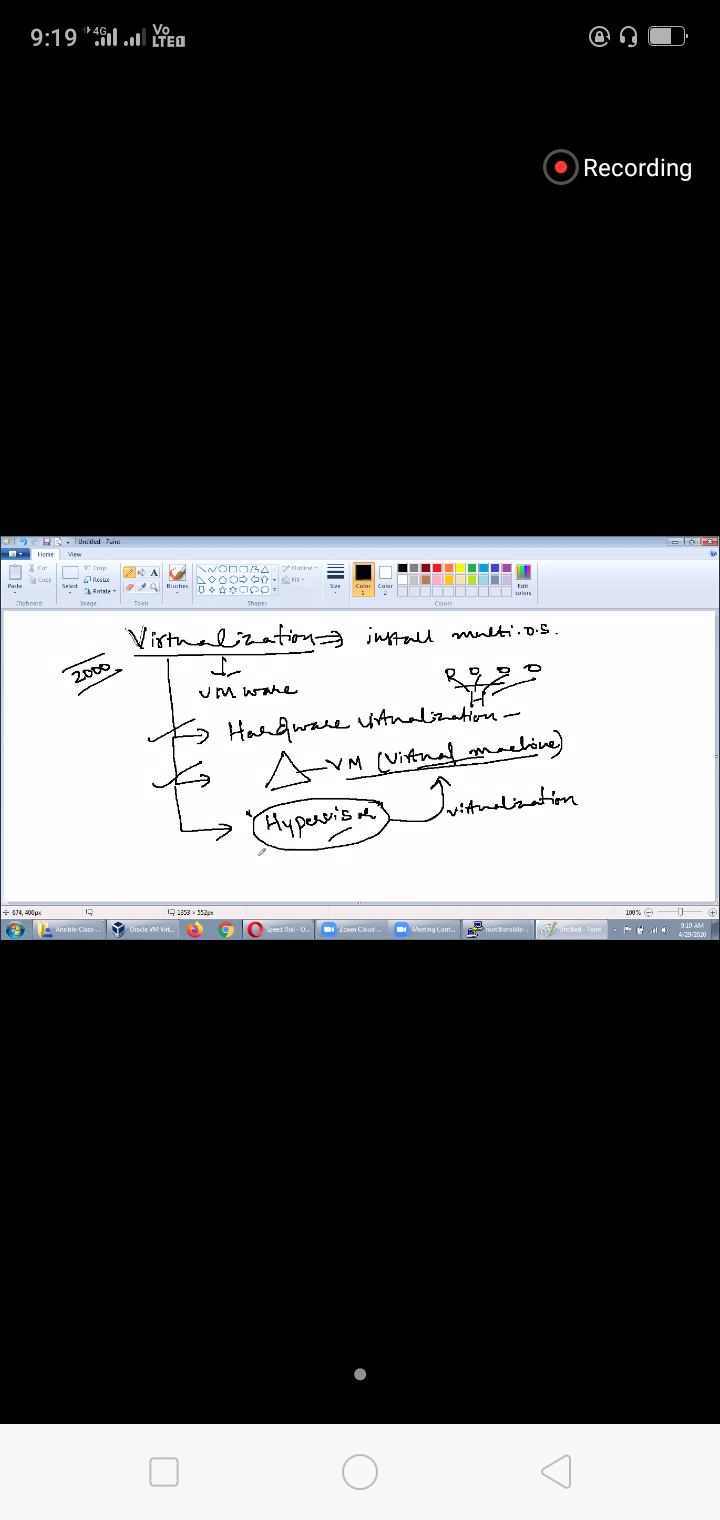 9:19 4G Vo LTE 1
Recording
Untitled - Paint
Home View
Paste Cut Copy
Clipboard
Select Crop Resize Rotate
Image
A
Tools
Brushes
Outline Fill
Shapes
Size
Color 1 Color 2
Edit colors
Colors
Virtualization ⇒ install multi.O.S.
2000
VM ware
R O O O
H
Hardware virtualization -
VM (virtual machine)
"Hypervisor"
virtualization
674, 406px 1353 × 552px 100%
Ansible-Class-... Oracle VM Virt... Speed Dial - O... Zoom Cloud ... Meeting Cont... root@ansible-... Untitled - Paint
9:19 AM
4/29/2020